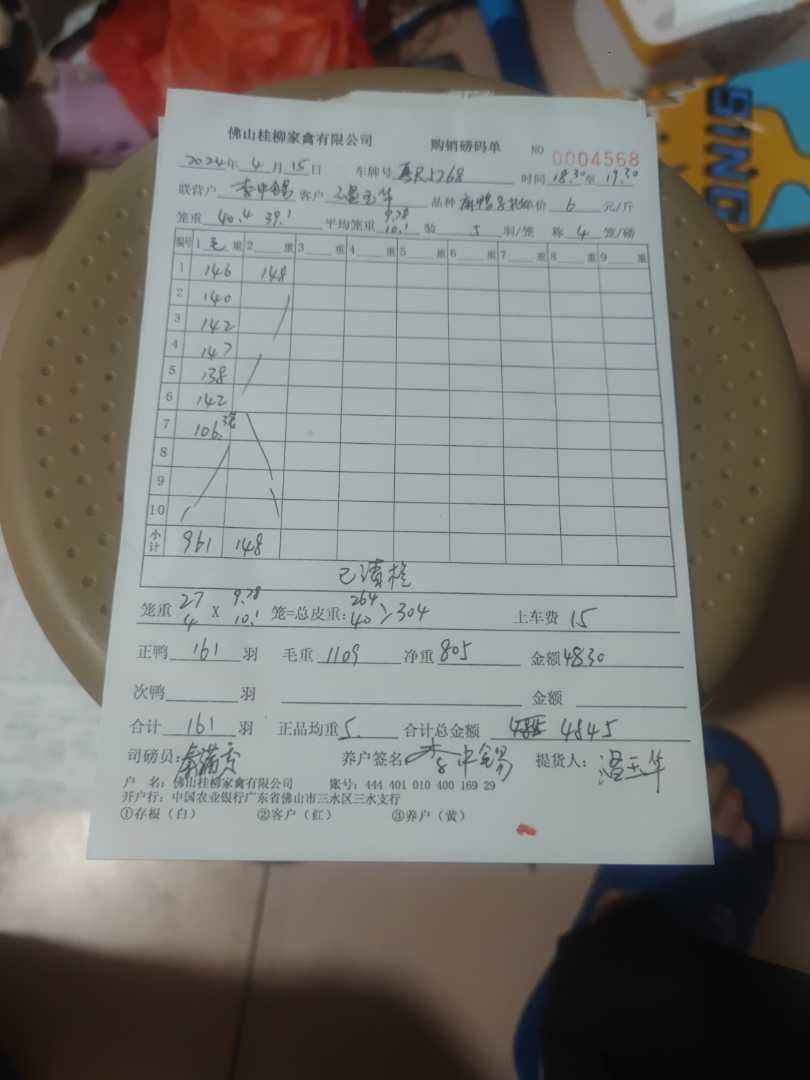 佛山桂柳家禽有限公司 购销磅码单 NO 0004568
2024年 4 月 15日 车牌号 R5768 时间 18.30至 19.30
联营户 李中锡 客户 温玉华 品种 麻鸭 价 6 元/斤
笼重 40.4 39.1 平均笼重 9.78 10.1 装 5 羽/笼 称 4 笼/磅
编号 1 毛 重 2 重 3 重 4 重 5 重 6 重 7 重 8 重 9 重
1 146 148
2 140
3 142
4 147
5 138
6 142
7 106.
8
9
10
小计 961 148
已清栏
笼重 27 4 X 9.78 10.1 笼=总皮重: 264 40 > 304 上车费 15
正鸭 161 羽 毛重 1109 净重 805 金额 4830
次鸭 羽 金额
合计 161 羽 正品均重 5. 合计总金额 4845
司磅员: 养户签名 李中锡 提货人: 温玉华
户 名: 佛山桂柳家禽有限公司 账号: 444 401 010 400 169 29
开户行: 中国农业银行广东省佛山市三水区三水支行
①存根（白） ②客户（红） ③养户（黄）
SING